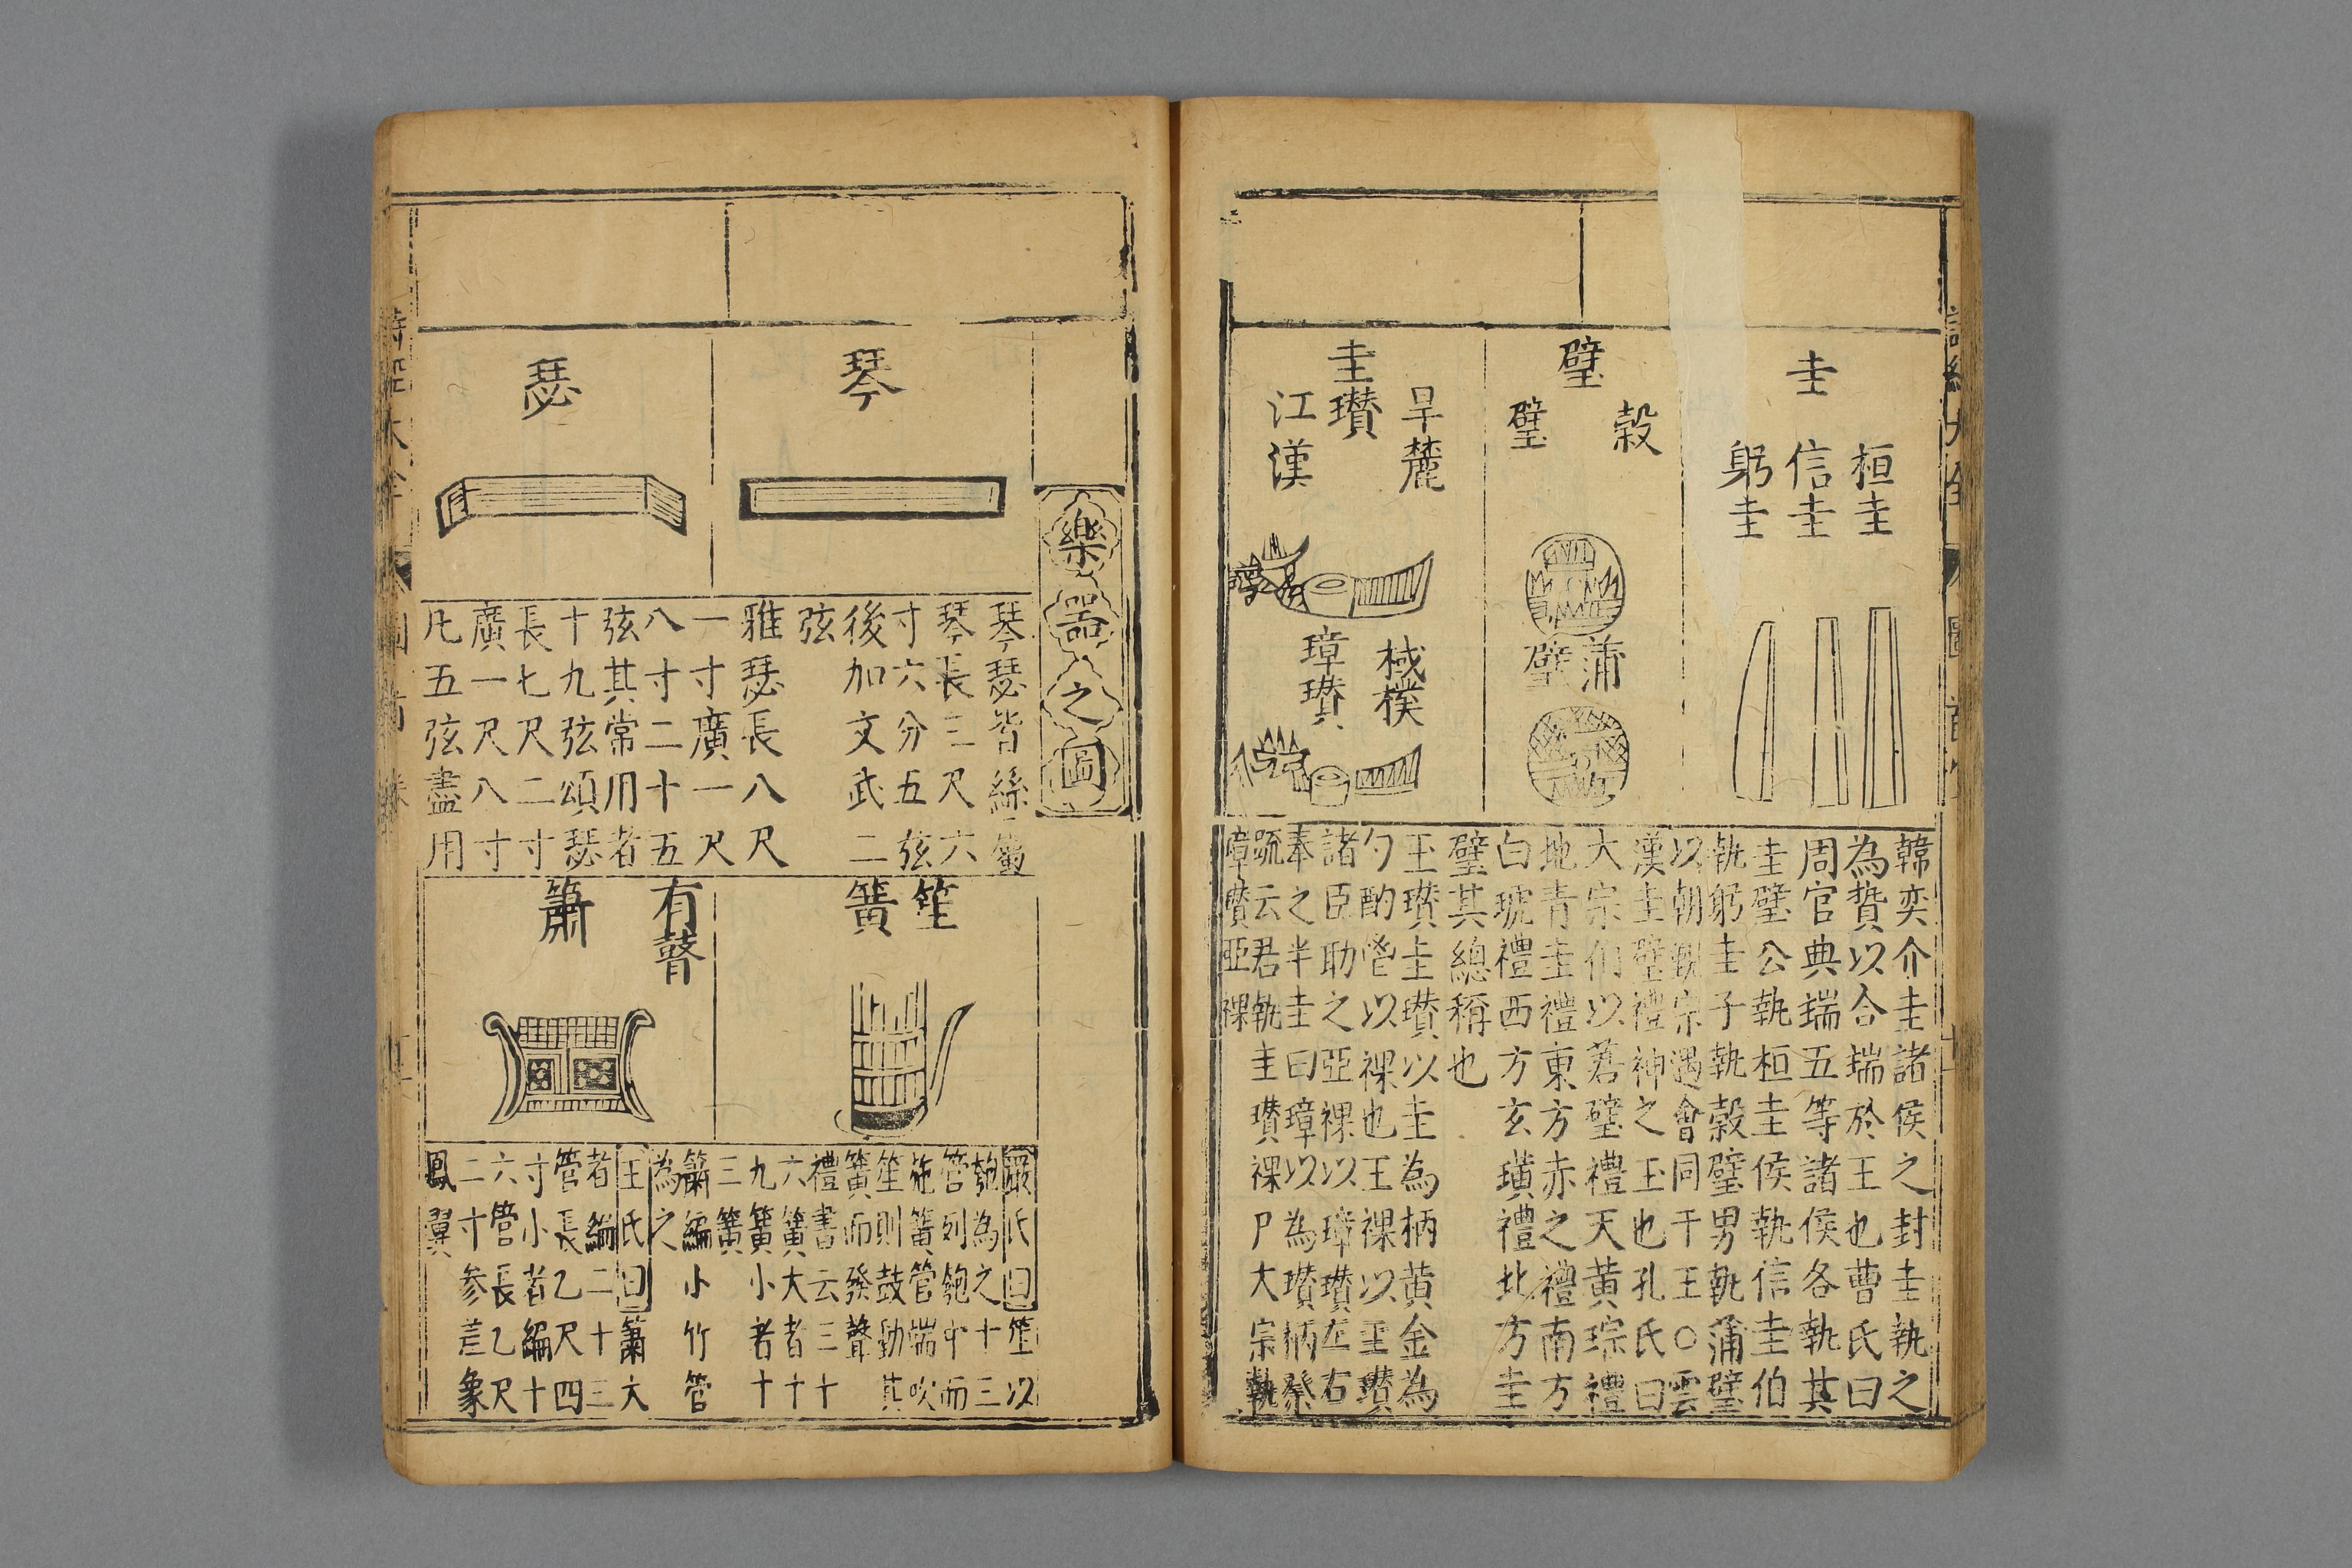 圭
桓圭
信圭
躬圭
韓奕介圭諸侯之封圭執之
為贄以合瑞於王也曹氏曰
周官典瑞五等諸侯各執其
圭璧公執桓圭侯執信圭伯
執躬圭子執穀璧男執蒲璧
以朝覲宗遇會同于王○雲
漢圭璧禮神之玉也孔氏曰
大宗伯以蒼璧禮天黃琮禮
地青圭禮東方赤之禮南方
白琥禮西方玄璜禮北方圭
璧其總稱也
璧
穀
璧
蒲
璧
圭瓚
旱麓
江漢
棫樸
璋瓚
玉瓚圭瓚以圭為柄黃金為
勺酌鬯以祼也王祼以圭瓚
諸臣助之亞祼以璋瓚左右
奉之半圭曰璋以為瓚柄祭
疏云君執圭瓚祼尸大宗執
璋瓚亞祼
樂器之圖
琴
瑟
琴瑟皆絲屬
琴長三尺六
寸六分五弦
後加文武二
弦
雅瑟長八尺
一寸廣一尺
八寸二十五
弦其常用者
十九弦頌瑟
長七尺二寸
廣一尺八寸
凡五弦盡用
笙
簧
有瞽
簫
嚴氏曰笙以
匏為之十三
管列匏中而
施簧管端吹
笙則鼓動其
簧而發聲
禮書云三十
六簧大者十
九簧小者十
三簧
簫編小竹管
為之
王氏曰簫大
者編二十三
管長乙尺四
寸小者編十
六管長乙尺
二寸参差象
鳳翼